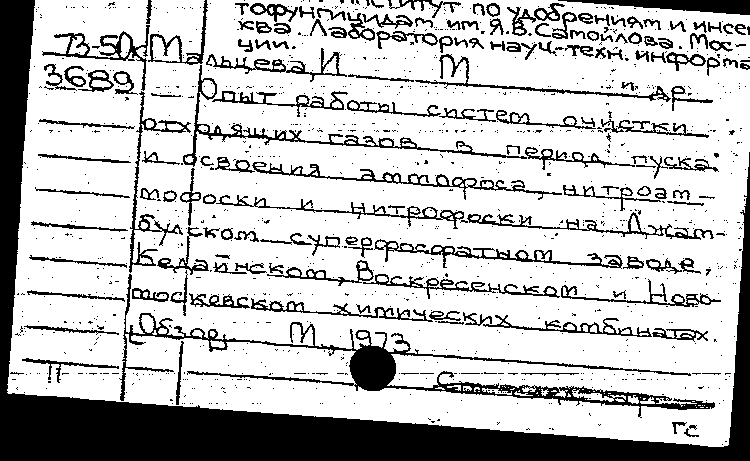 институт по удобрениям и инсек-
тофунгицидам им. Я.В. Самойлова. Мос-
ква. Лаборатория науч.-техн. информа-
ции.
73-50к Мальцева, И М
3689 и др.
Опыт работы систем очистки
отходящих газов в период пуска
и освоения аммофоса, нитроам-
мофоски и нитрофоски на Джам-
булском суперфосфатном заводе,
Кедайнском, Воскресенском и Ново-
московском химических комбинатах.
[Обзор]. М., 1973.
П
ГС